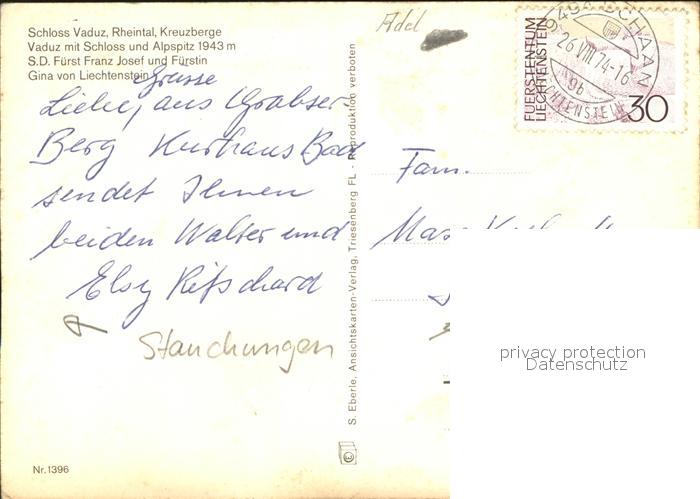 Schloss Vaduz, Rheintal, Kreuzberge
Vaduz mit Schloss und Alpspitz 1943 m
S.D. Fürst Franz Josef und Fürstin
Gina von Liechtenstein
Grüsse
Liebe, aus Grabser-
Berg Kurhaus Bad
sendet Ihnen
beiden Walter und
Elsy Ritschard
Stauchungen
Nr. 1396
S. Eberle, Ansichtskarten-Verlag, Triesenberg FL - Reproduktion verboten
Adel
FUERSTENTUM
LIECHTENSTEIN
30
9494 SCHAAN
26 VIII 74-16
9b
LIECHTENSTEIN
Fam.
Max
privacy protection
Datenschutz